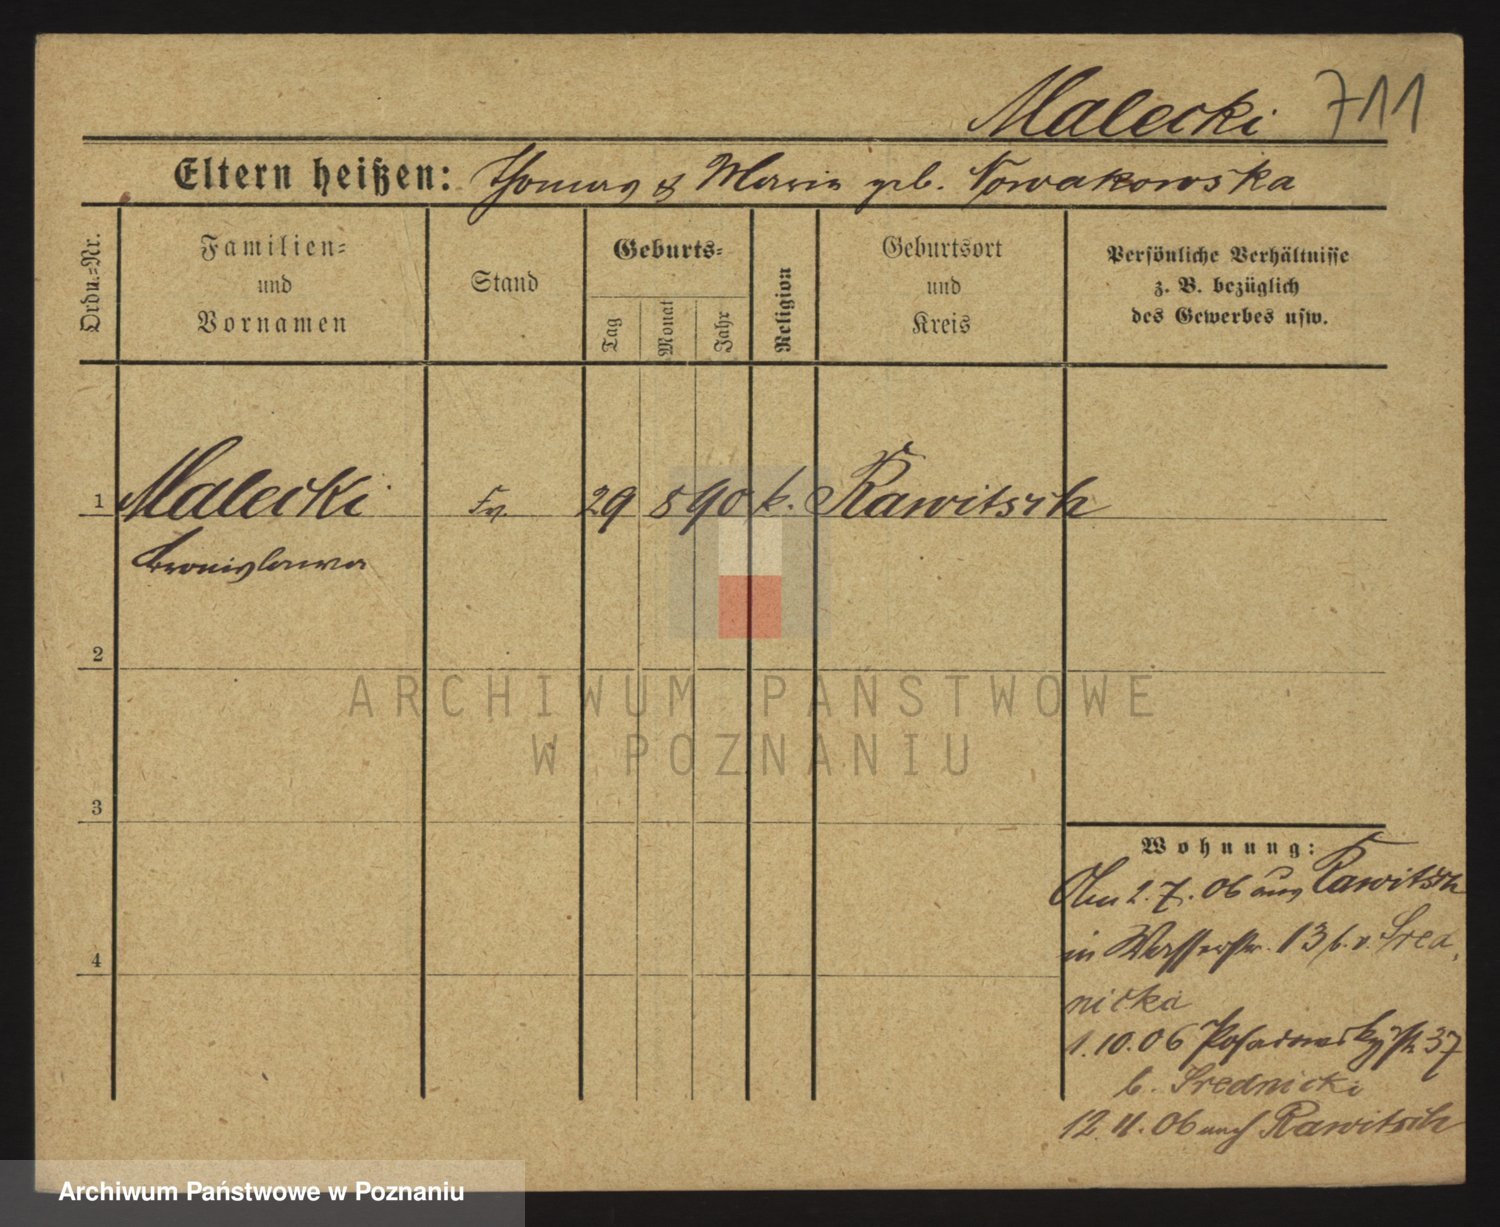 Malecki 711
Eltern heißen: Thomas & Maria geb. Nowakowska
Ordn.=Nr.
Familien=
und
Vornamen
Stand
Geburts=
Tag
Monat
Jahr
Religion
Geburtsort
und
Kreis
Persönliche Verhältnisse
z. B. bezüglich
des Gewerbes usw.
1 Malecki 29 8 90 k. Rawitsch
Bronislawa
2
3
4
Wohnung:
2.7.06 aus Rawitsch
in Wasserstr. 13 b. v. Sred
nicka
1.10.06 Posadowskystr 37
b. Srednicki
12.11.06 nach Rawitsch
ARCHIWUM PAŃSTWOWE
W POZNANIU
Archiwum Państwowe w Poznaniu